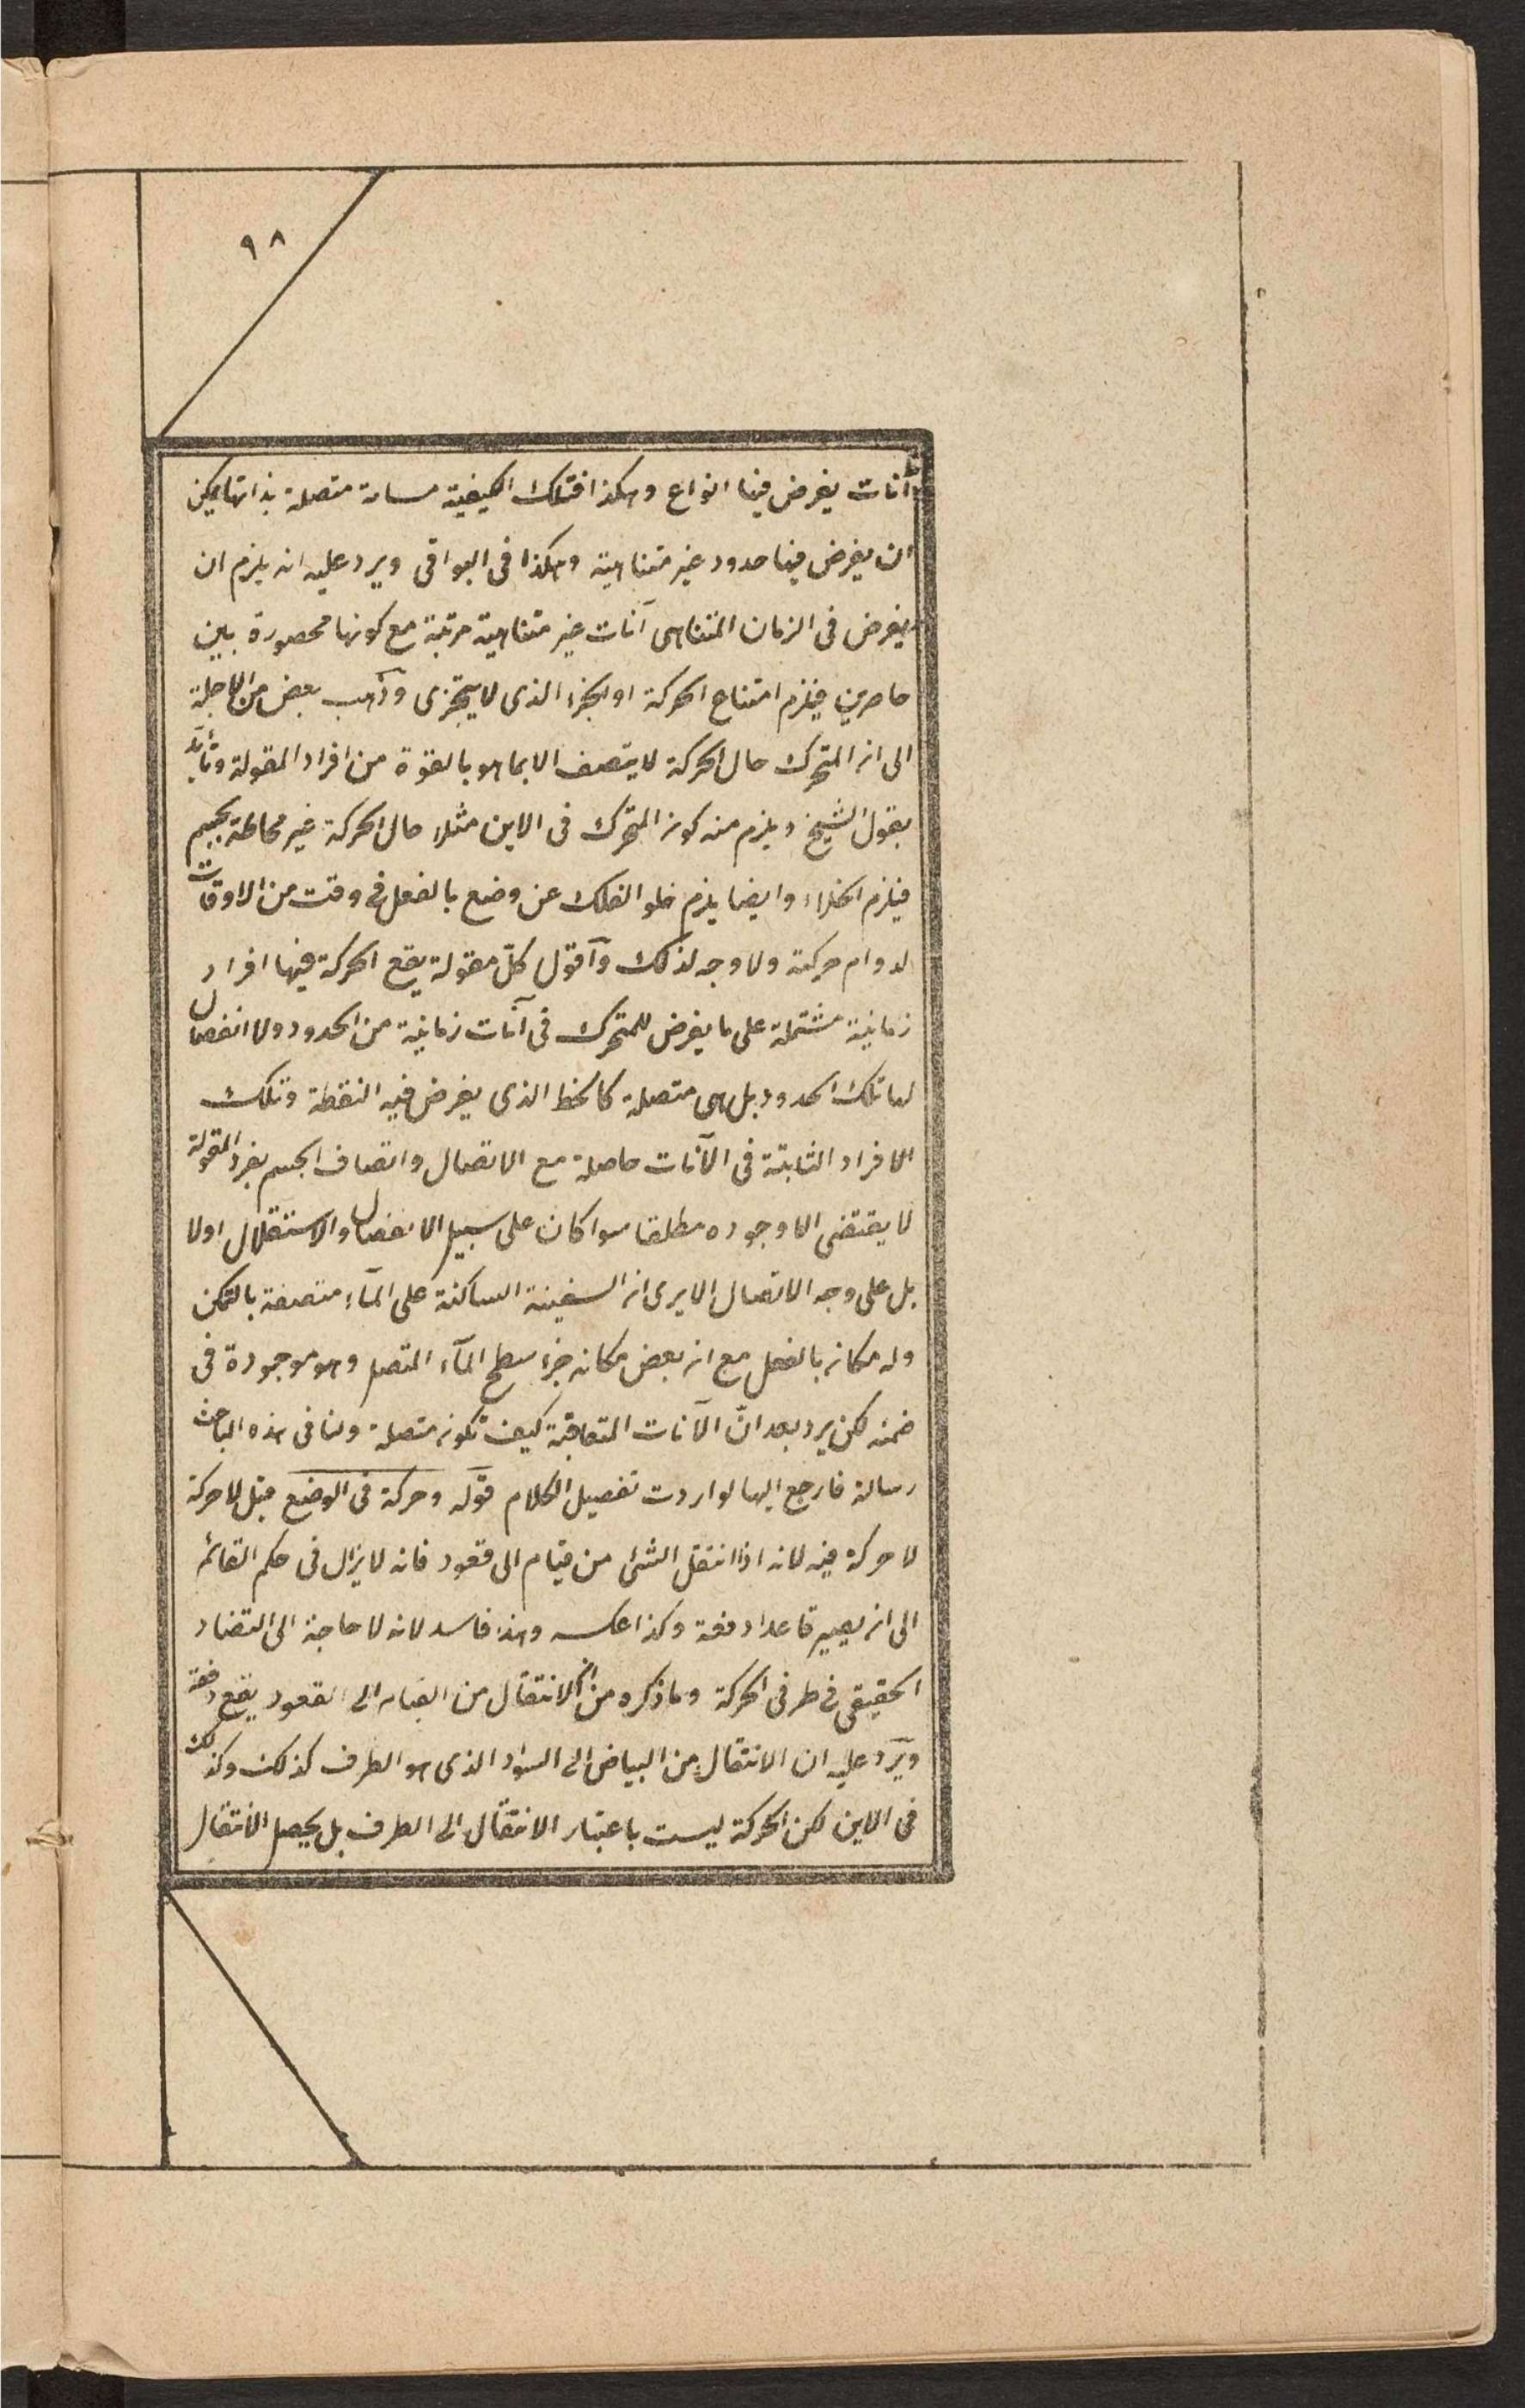 ٩٨
آنات يفرض فيها انواع وهكذا فتلك الكيفية مسافة متصلة بذاتها يمكن
ان يفرض فيها حدود غير متناهية وهكذا فى البواقى ويرد عليه انه يلزم ان
يفرض فى الزمان المتناهى آنات غير متناهية مرتبة مع كونها محصورة بين
حاصرين فيلزم امتناع الحركة او الجزء الذى لا يتجزى وذهب بعض من الاجلة
الى ان المتحرك حال الحركة لا يتصف الا بما هو بالقوة من افراد المقولة وتأيد
بقول الشيخ ويلزم منه كون المتحرك فى الاين مثلا حال الحركة غير محاطة بجسم
فيلزم الخلاء وايضا يلزم خلو الفلك عن وضع بالفعل فى وقت من الاوقات
لدوام حركته ولا وجه لذلك وأقول كل مقولة يقع الحركة فيها افراد
زمانية مشتملة على ما يفرض للمتحرك فى آنات زمانية من الحدود ولا انفصال
لها تلك الحدود بل هى متصلة كالخط الذى يفرض فيه النقطة وتلك
الافراد الثابتة فى الآنات حاصلة مع الاتصال واتصاف الجسم بفرد المقولة
لا يقتضى الا وجوده مطلقا سوا كان على سبيل الانفصال والاستقلال اولا
بل على وجه الاتصال الا يرى ان السفينة الساكنة على المآء متصفة بالتمكن
وله مكان بالفعل مع ان بعض مكانه جزء سطح المآء المتصل وهو موجودة فى
ضمنه لكن يرد بعد انّ الآنات المتعاقبة كيف تكون متصلة ولنا فى هذه المباحث
رسالة فارجع اليها لو اردت تفصيل الكلام قوله وحركة فى الوضع قبل لا حركة
لا حركة فيه لانه اذا انتقل الشئ من قيام الى قعود فانه لا يزال فى حكم القائم
الى ان يصير قاعدا دفعة وكذا عكسه وهذا فاسد لانه لا حاجة الى التضاد
الحقيقى فى طرفى الحركة وما ذكره من ان الانتقال من القيام الى القعود يقع دفعة
ويرد عليه ان الانتقال من البياض الى السواد الذى هو الطرف كذلك وكذلك
فى الاين لكن الحركة ليست باعتبار الانتقال الى الطرف بل يحصل الانتقال